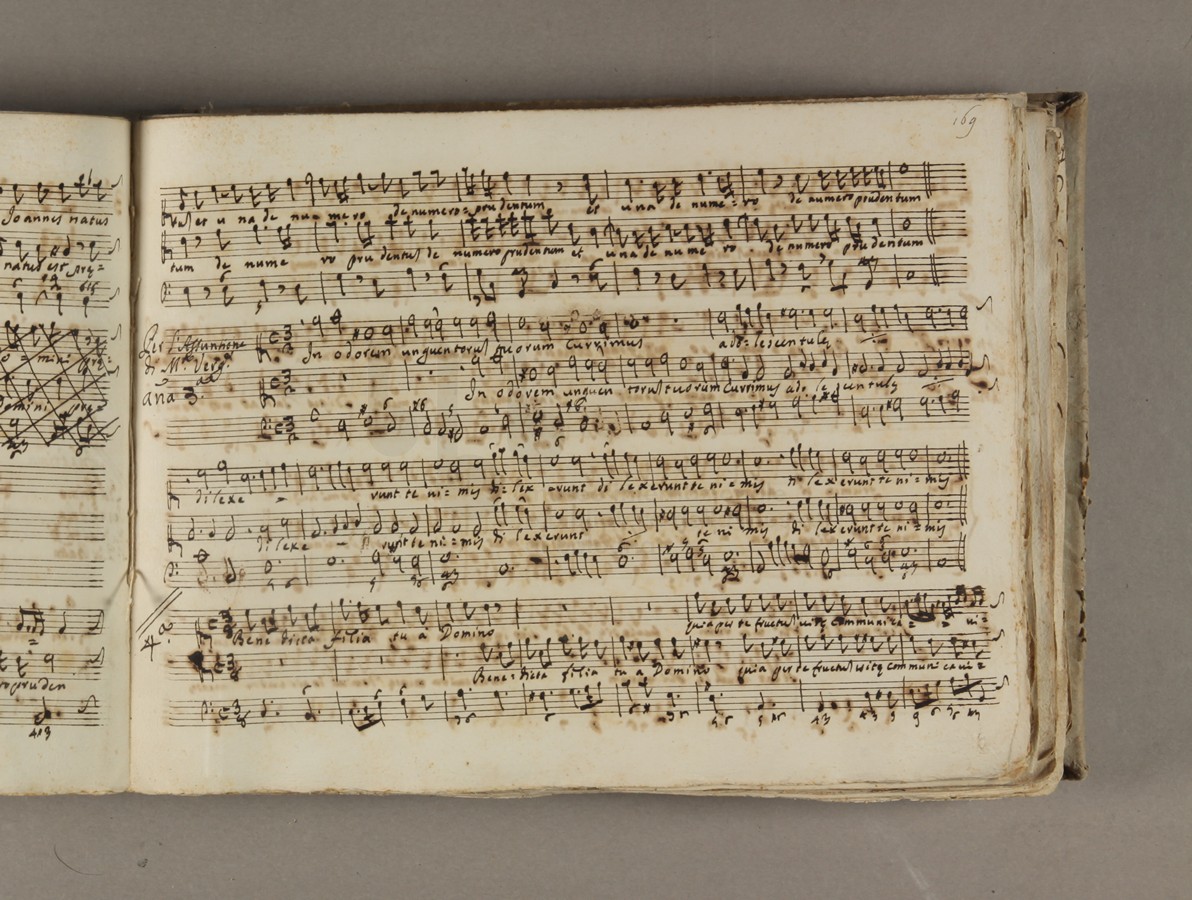 169
Joannes natus
natus est
et u na de nu = me ro de numero = prudentum et una de nume = ro de numero prudentum
tum de nume ro pru dentum de numero prudentum et una de nume ro de numero prudentum
Per l'Assunnone
di M.ª Verg.e
Ana 3.a
In odorem unguentorum tuorum currimus ado = lescentulę
In odorem unguen torum tuorum currimus ado le scentulę
dilexe = runt te ni = mis di = lex = runt di lexerunt te ni = mis di lexerunt te ni = mis
dilexe runt te ni = mis di lexerunt te ni mis di lexerunt te ni = mis
4.a
Bene dicta filia tu a Domino quia per te fructum vitę communica = vi =
Bene = dicta filia tu a Domino quia per te fructum vitę communi cavi =
pruden